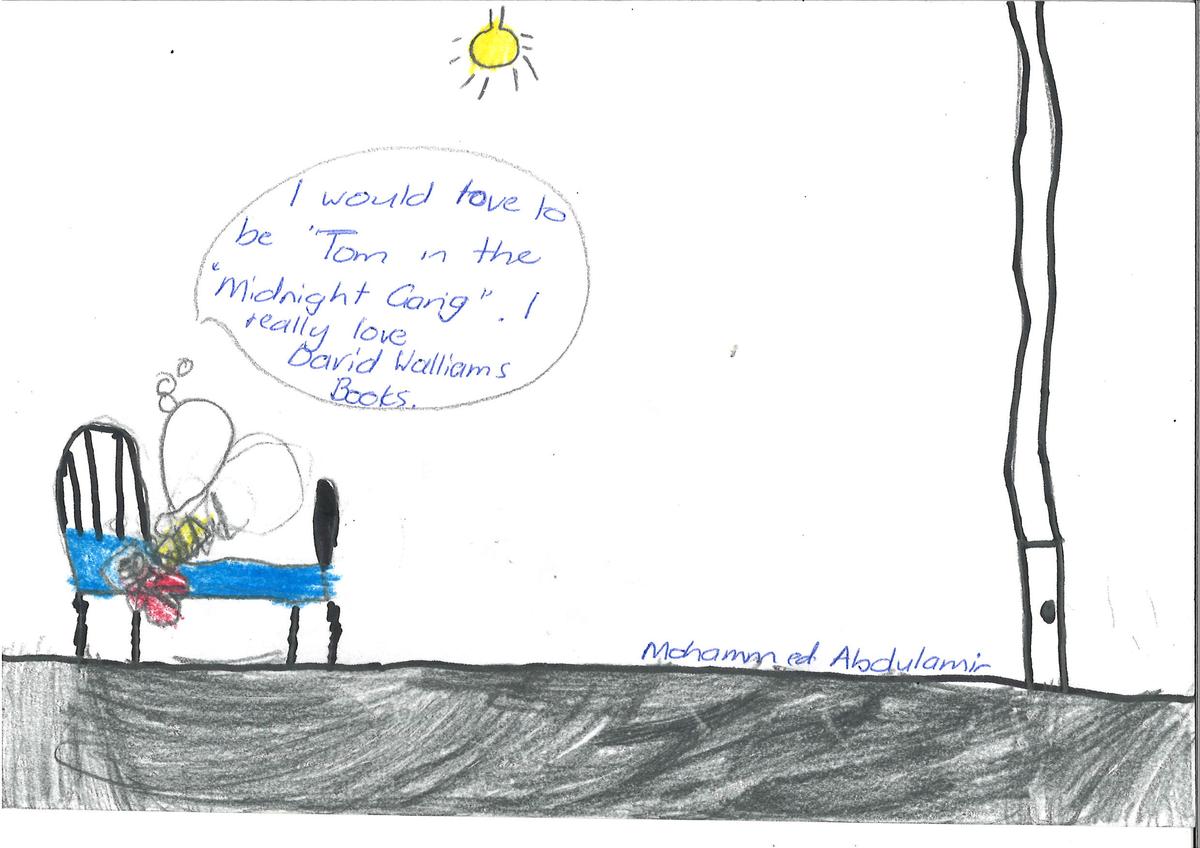 I would love to
be 'Tom in the
"Midnight Gang". I
really love
David Walliams
Books.
Mohammed Abdulamir